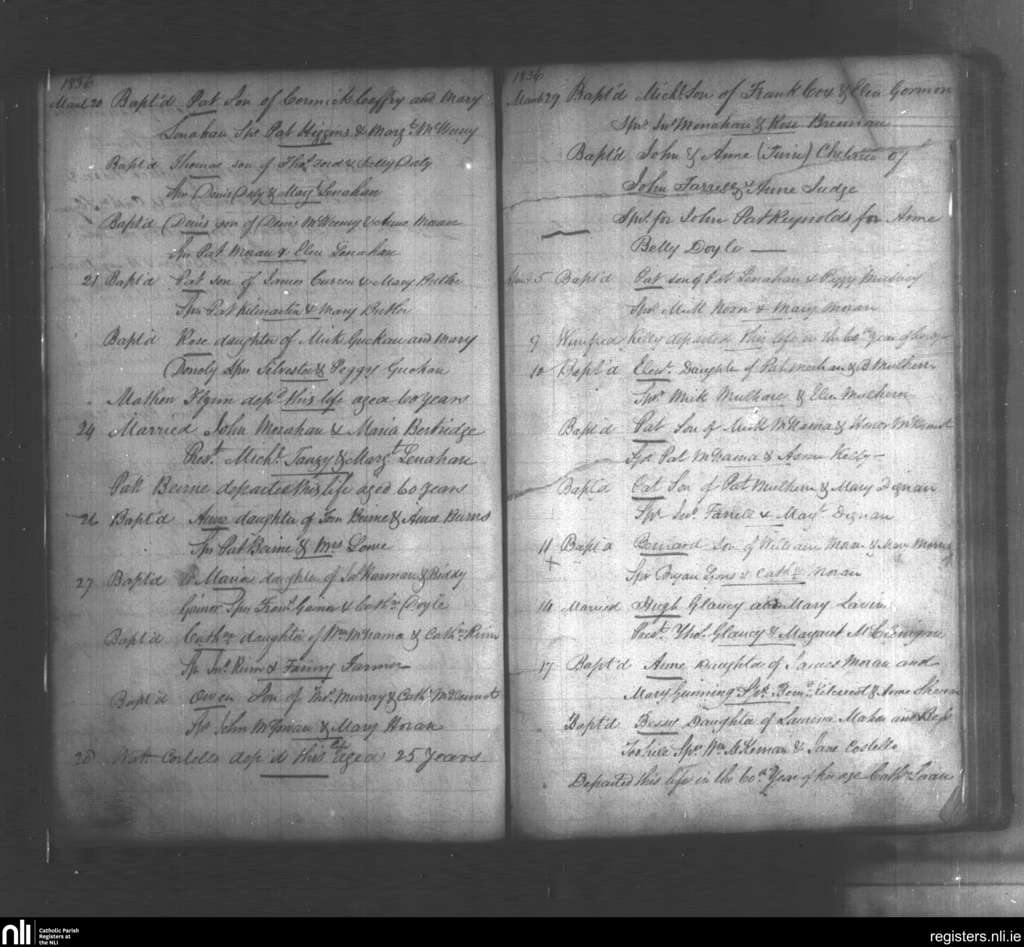 1836
March 20 Bapt'd Pat Son of Cormick Caffry and Mary
Lenahan Sprs Pat Higgins & Margt McWeeny
Bapt'd Thomas son of Thos Ford & Kelly Daly
Spr Denis Daly & Mary Lenahan
Bapt'd Denis son of Denis McWeeny & Anne Moran
Spr Pat Moran & Elen Lenahan
21 Bapt'd Pat son of James Curren & Mary Butler
Sprs Pat Kilmartin & Mary Butler
Bapt'd Rose daughter of Mick Guckan and Mary
Donoly Sprs Silvester & Peggy Guckan
Mathew Flynn depd this life aged 60 years
24 Married John Monahan & Maria Berbridge
Prest Michl Tanzy & Margt Lenahan
Patt Beirne departed this life aged 60 Years
26 Bapt'd Anne daughter of Tom Beirne & Anne Burns
Sprs Pat Beirne & Mrs Lowe
27 Bapt'd Maria daughter of Jno Harman & Biddy
Gainor Sprs Frans Gainor & Cathn Doyle
Bapt'd Cathne daughter of Wm McNama & Cathn Kirm
Spr Jno Kirm & Fanny Farmer
Bapt'd Owen Son of Thos Murray & Cath McDermot
Sprs John McGowan & Mary Horan
28 Watt Costello dep'd this life aged 25 Years
1836
March 29 Bapt'd Michl Son of Frank Cox & Elen Gormon
Sprs Jno Monahan & Rose Brennan
Bapt'd John & Anne (Twin) Children of
John Farrell & Anne Judge
Sprs for John Pat Reynolds for Anne
Betty Doyle
5 Bapt'd Pat son of Pat Lenahan & Peggy
Sprs Matt Noon & Mary Moran
9 Winifred Kelly departed this life in the 60th Year of her age
10 Bapt'd Daughter of Pat Meehan & B Mulhern
Sprs Mick & Elen Mulhern
Bapt'd Pat Son of Mick McNama & Honor McDermot
Sprs Pat McNama & Anne Kelly
Bapt'd Pat Son of Pat Mulhern & Mary Dignan
Sprs Jno Farrell & Mary Dignan
11 Bapt'd Bernard son of William Moran & Mary
Sprs Bryan Lyons & Cathn Moran
14 Married Hugh Glancy and Mary Lavin
Prest Thos Glancy & Margaret
17 Bapt'd Anne Daughter of James Moran and
Mary Gunning Sprs & Anne
Bapt'd Daughter of Laurence Mahon and Bess
Sprs Wm McKernan & Jane Costello
Departed this life in the 60th Year of her age Cathn
nli
Catholic Parish
Registers at
the NLI
registers.nli.ie